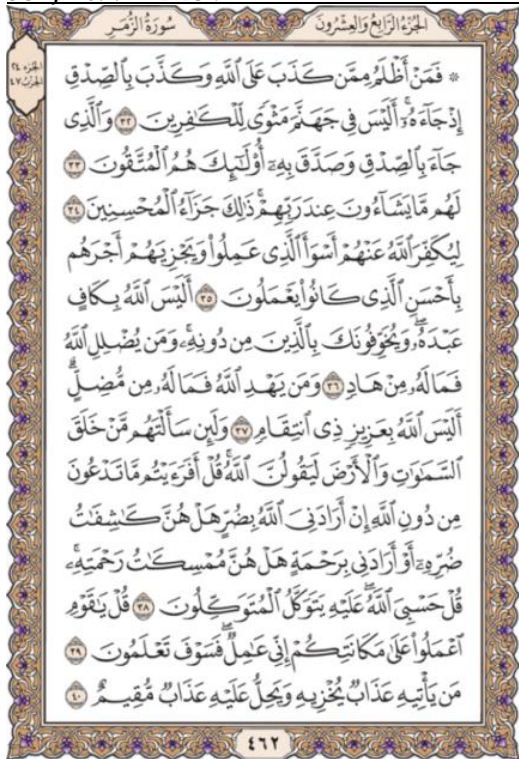 الجزء الرابع والعشرون
سورة الزمر
الجزء ٢٤
الحزب ٤٧
۞ فَمَنْ أَظْلَمُ مِمَّن كَذَبَ عَلَى ٱللَّهِ وَكَذَّبَ بِٱلصِّدْقِ
إِذْ جَآءَهُۥٓۚ أَلَيْسَ فِى جَهَنَّمَ مَثْوًى لِّلْكَٰفِرِينَ ٣٢ وَٱلَّذِى
جَآءَ بِٱلصِّدْقِ وَصَدَّقَ بِهِۦٓ أُو۟لَٰٓئِكَ هُمُ ٱلْمُتَّقُونَ ٣٣
لَهُم مَّا يَشَآءُونَ عِندَ رَبِّهِمْۚ ذَٰلِكَ جَزَآءُ ٱلْمُحْسِنِينَ ٣٤
لِيُكَفِّرَ ٱللَّهُ عَنْهُمْ أَسْوَأَ ٱلَّذِى عَمِلُوا۟ وَيَجْزِيَهُمْ أَجْرَهُم
بِأَحْسَنِ ٱلَّذِى كَانُوا۟ يَعْمَلُونَ ٣٥ أَلَيْسَ ٱللَّهُ بِكَافٍ
عَبْدَهُۥۖ وَيُخَوِّفُونَكَ بِٱلَّذِينَ مِن دُونِهِۦۚ وَمَن يُضْلِلِ ٱللَّهُ
فَمَا لَهُۥ مِنْ هَادٍ ٣٦ وَمَن يَهْدِ ٱللَّهُ فَمَا لَهُۥ مِن مُّضِلٍّۗ
أَلَيْسَ ٱللَّهُ بِعَزِيزٍ ذِى ٱنتِقَامٍ ٣٧ وَلَئِن سَأَلْتَهُم مَّنْ خَلَقَ
ٱلسَّمَٰوَٰتِ وَٱلْأَرْضَ لَيَقُولُنَّ ٱللَّهُۚ قُلْ أَفَرَءَيْتُم مَّا تَدْعُونَ
مِن دُونِ ٱللَّهِ إِنْ أَرَادَنِىَ ٱللَّهُ بِضُرٍّ هَلْ هُنَّ كَٰشِفَٰتُ
ضُرِّهِۦٓ أَوْ أَرَادَنِى بِرَحْمَةٍ هَلْ هُنَّ مُمْسِكَٰتُ رَحْمَتِهِۦۚ
قُلْ حَسْبِىَ ٱللَّهُۖ عَلَيْهِ يَتَوَكَّلُ ٱلْمُتَوَكِّلُونَ ٣٨ قُلْ يَٰقَوْمِ
ٱعْمَلُوا۟ عَلَىٰ مَكَانَتِكُمْ إِنِّى عَٰمِلٌۖ فَسَوْفَ تَعْلَمُونَ ٣٩
مَن يَأْتِيهِ عَذَابٌ يُخْزِيهِ وَيَحِلُّ عَلَيْهِ عَذَابٌ مُّقِيمٌ ٤٠
٤٦٢